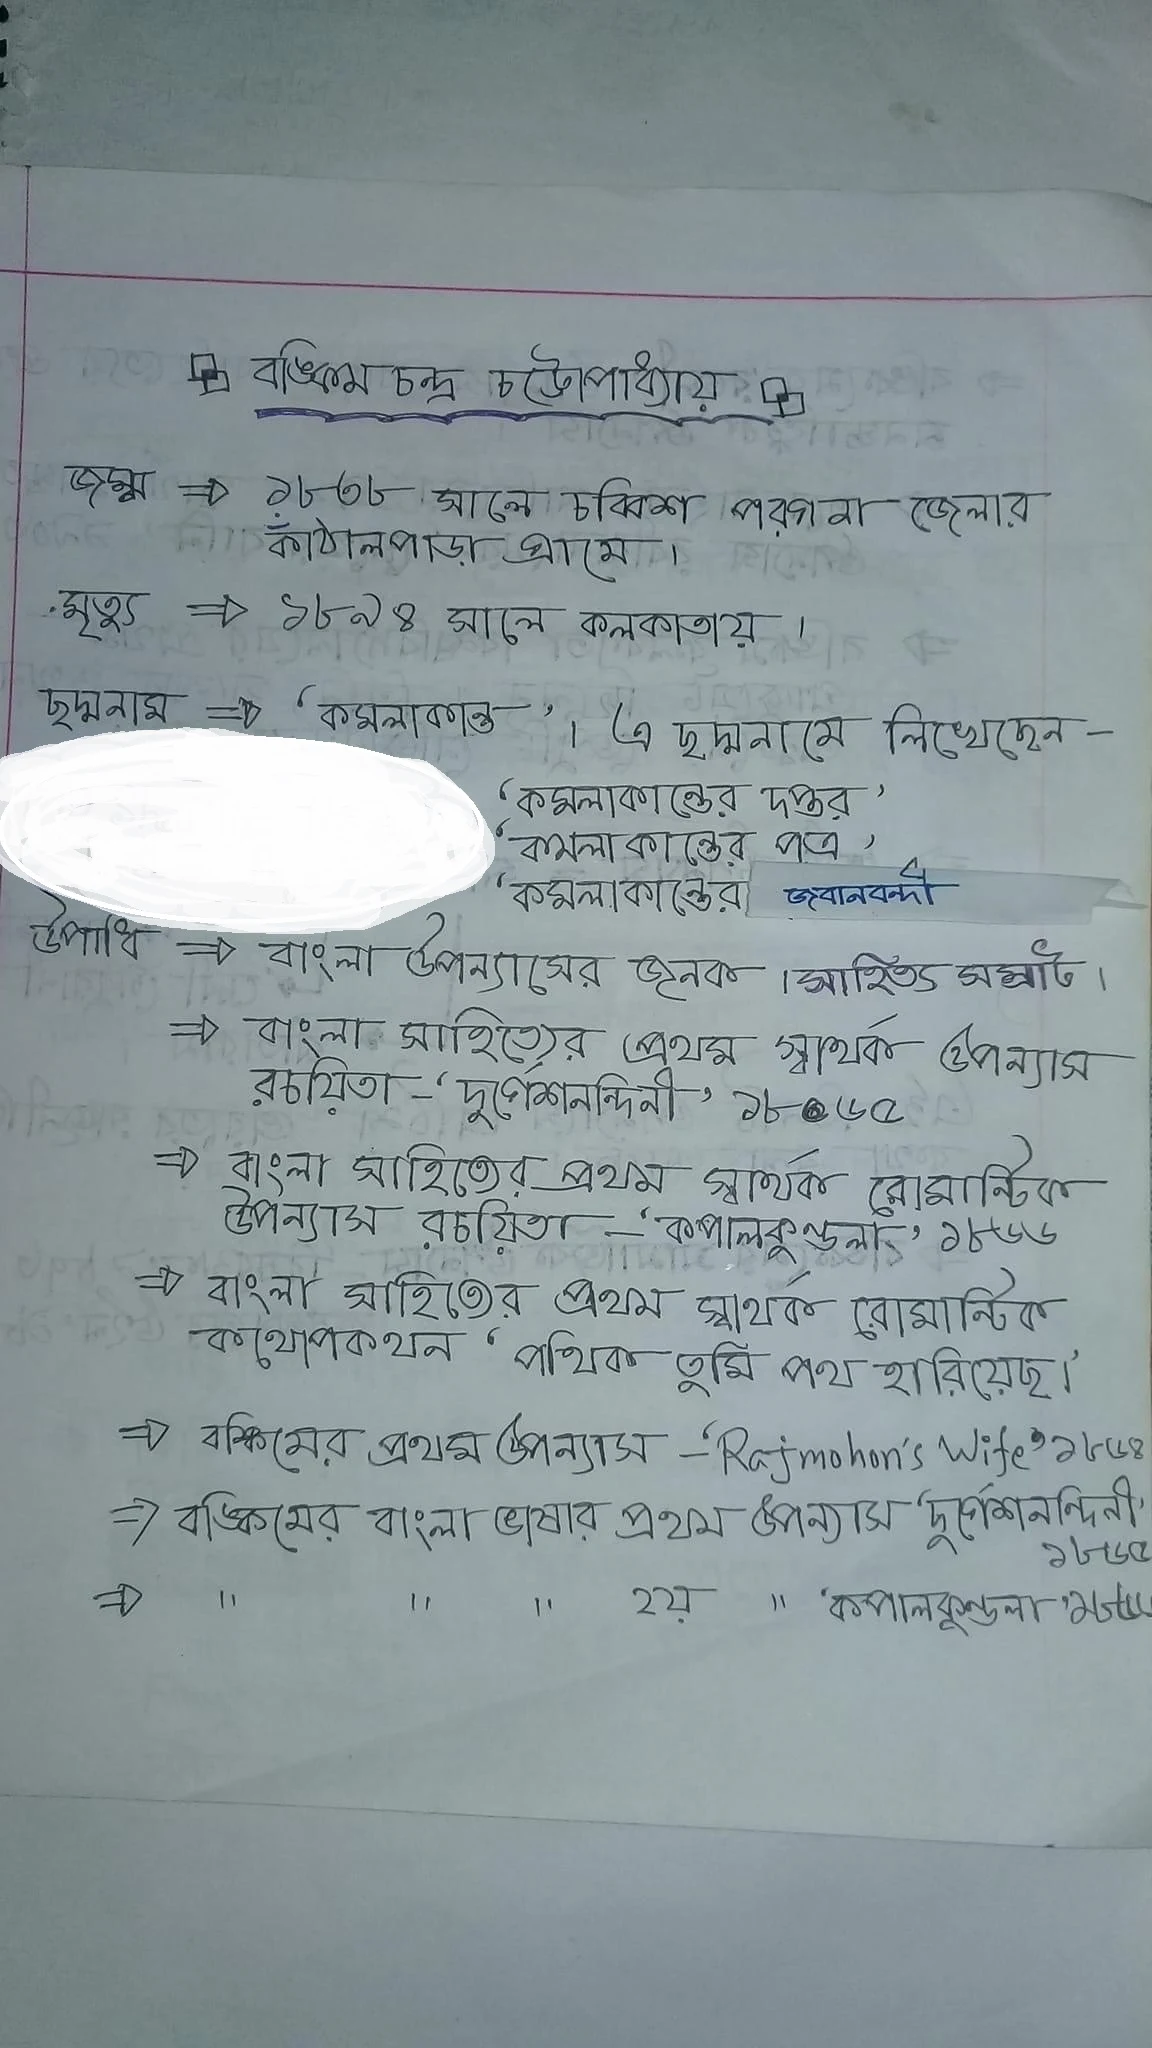 বঙ্কিম চন্দ্র চট্টোপাধ্যায়
জন্ম ⇒ ১৮৩৮ সালে চব্বিশ পরগনা জেলার
কাঁঠালপাড়া গ্রামে।
মৃত্যু ⇒ ১৮৯৪ সালে কলকাতায়।
ছদ্মনাম ⇒ ‘কমলাকান্ত’। এ ছদ্মনামে লিখেছেন –
‘কমলাকান্তের দপ্তর’
‘কমলাকান্তের পত্র’
‘কমলাকান্তের জবানবন্দী
উপাধি ⇒ বাংলা উপন্যাসের জনক। সাহিত্য সম্রাট।
⇒ বাংলা সাহিত্যের প্রথম স্বার্থক উপন্যাস
রচয়িতা – ‘দুর্গেশনন্দিনী’ ১৮৬৫
⇒ বাংলা সাহিতের প্রথম স্বার্থক রোমান্টিক
উপন্যাস রচয়িতা – ‘কপালকুন্ডলা’ ১৮৬৬
⇒ বাংলা সাহিতের প্রথম স্বার্থক রোমান্টিক
কথোপকথন ‘পথিক তুমি পথ হারিয়েছ।’
⇒ বঙ্কিমের প্রথম উপন্যাস – ‘Rajmohon's Wife’ ১৮৬৪
⇒ বঙ্কিমের বাংলা ভাষার প্রথম উপন্যাস ‘দুর্গেশনন্দিনী’
১৮৬৫
⇒ " " " ২য় " ‘কপালকুন্ডলা’